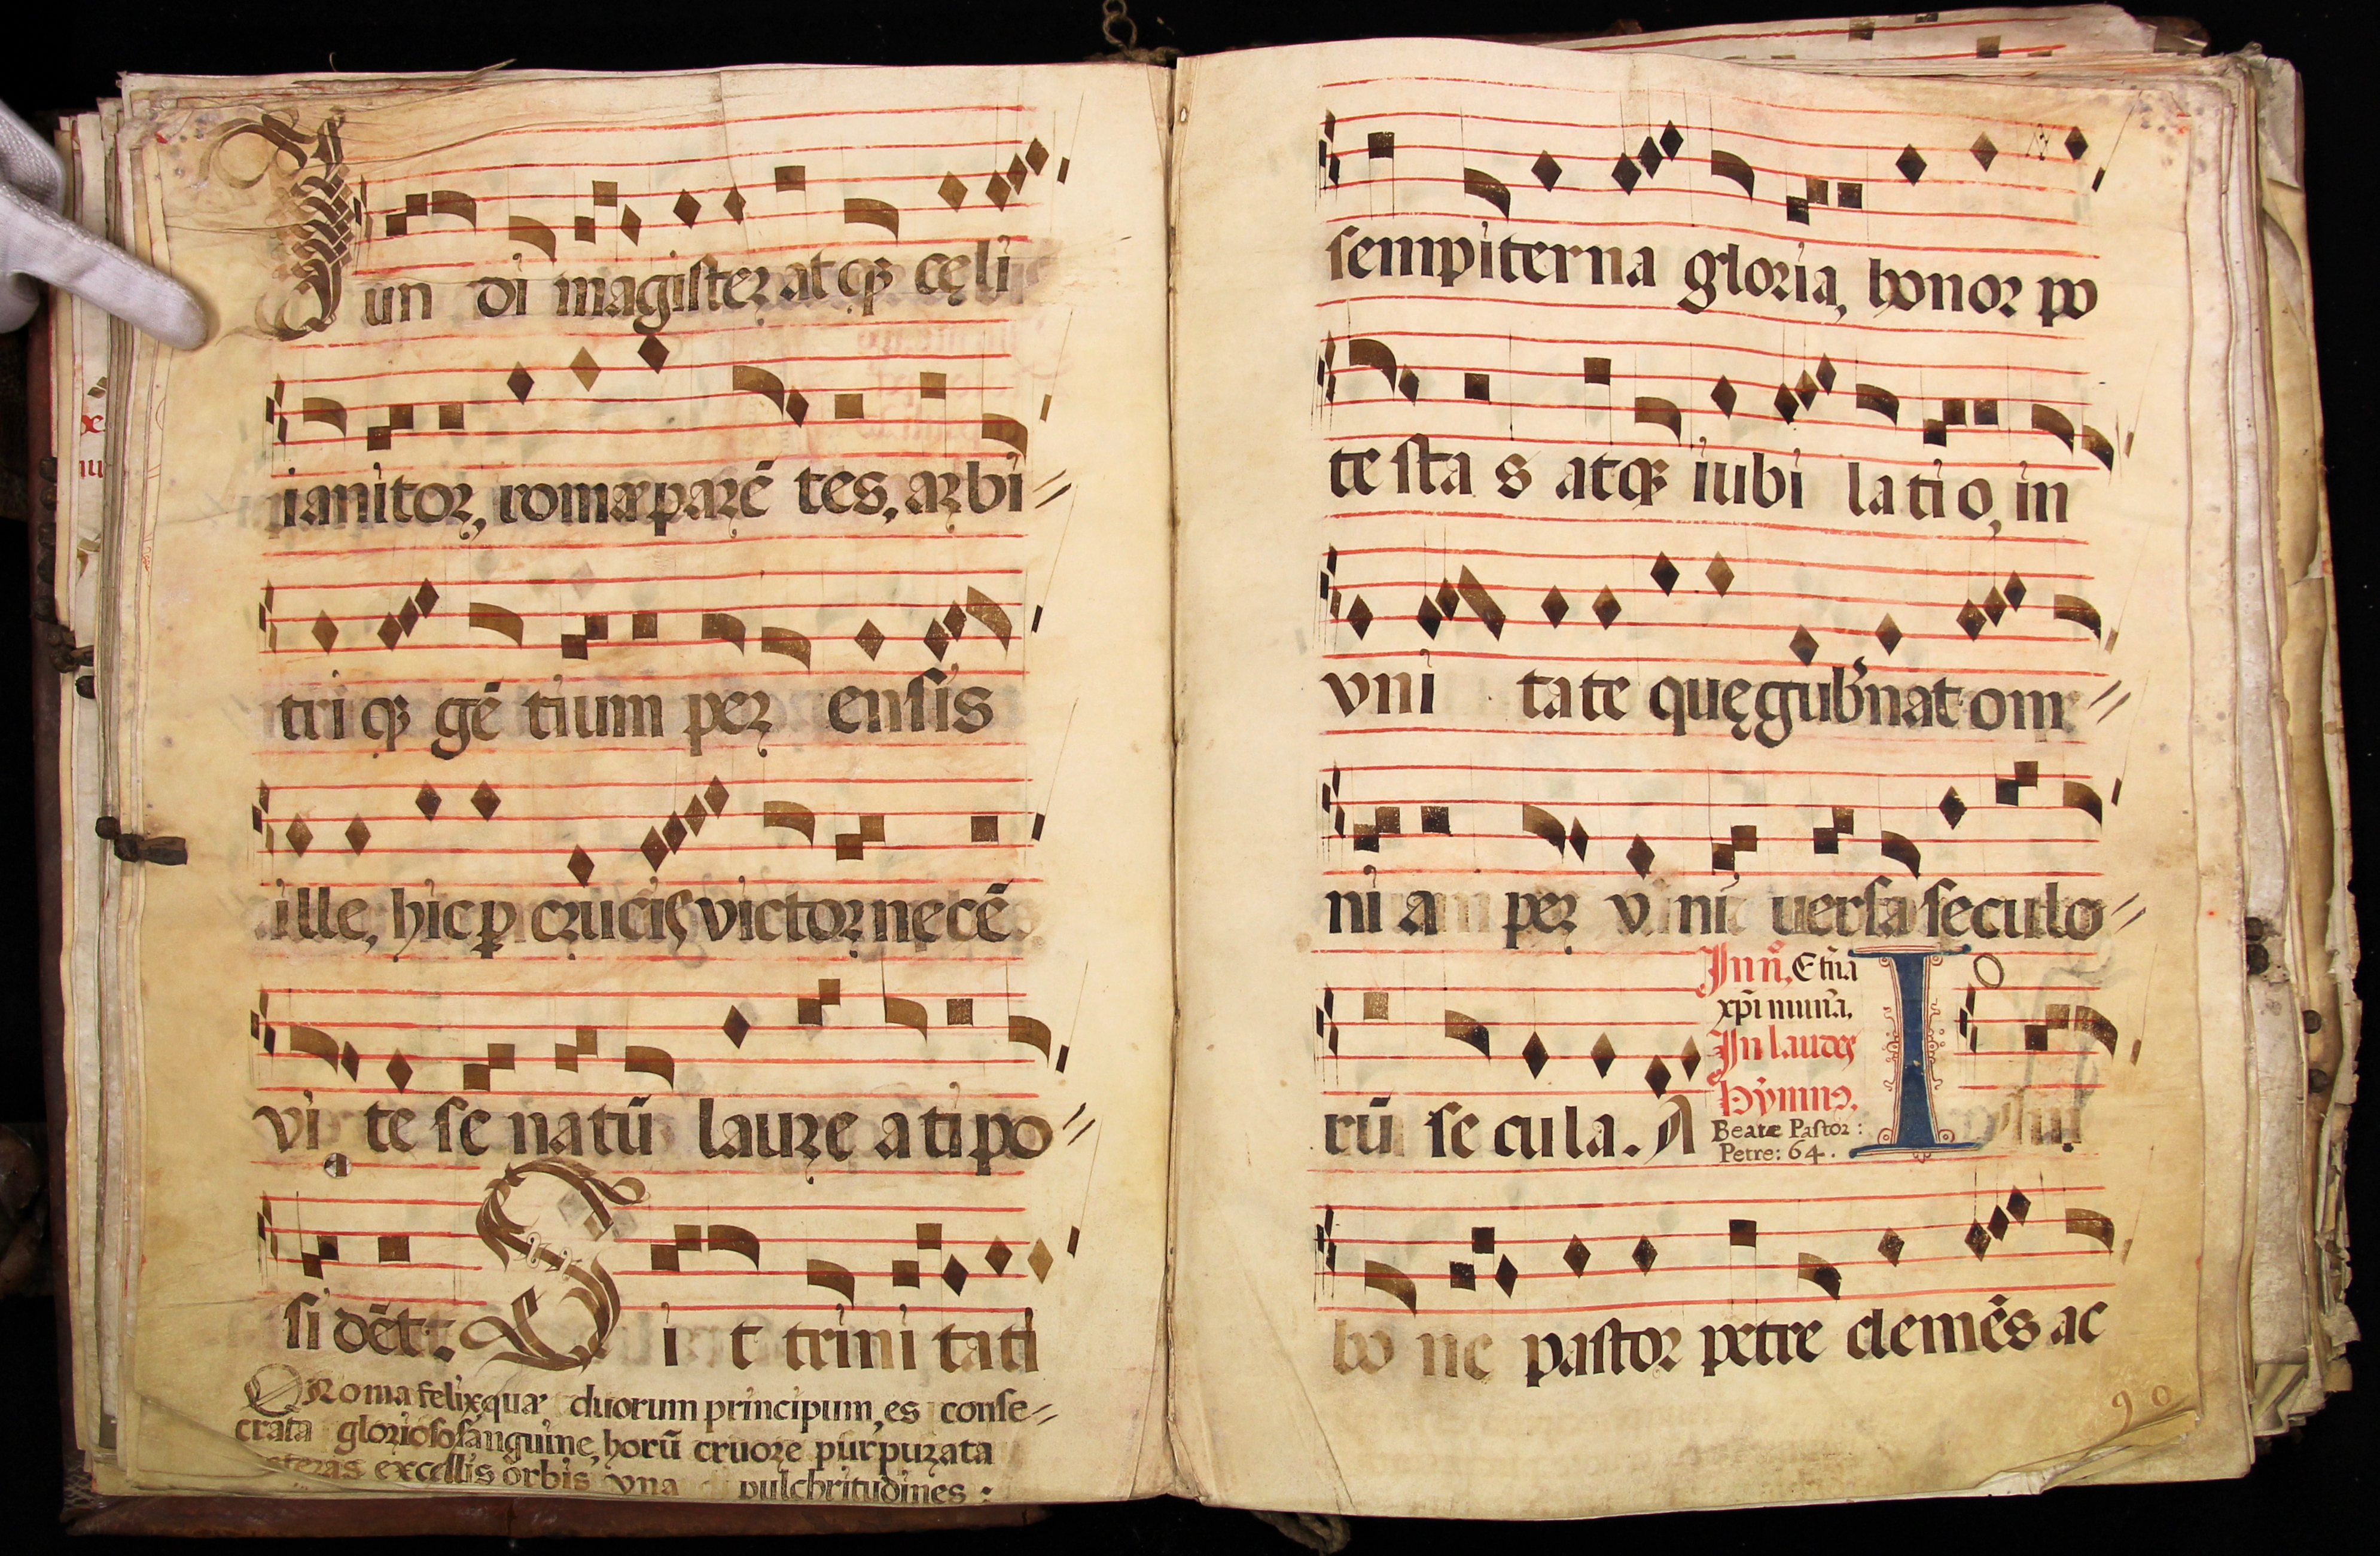 Mun di magister atqꝫ cęli
ianitor, romæ parē tes, arbi=
tri qꝫ gē tium per ensis
ille, hic ꝑ crucis victor necē
vi te se natū laure ati po=
si dēt: Si t trini tati
O Roma felix quæ duorum principum, es conse=
crata glorioso sanguine, horū cruore purpurata
ceteras excellis orbis vna pulchritudines :
sempiterna gloria, honor po
te sta s atqꝫ iubi latio, in
vni tate quę gub̄nat om=
ni a per v ni uersa seculo=
rū se cula. A
Inñ. Et̄na
xp̄i mun̄a.
In laudes
Hÿmnꝰ.
Beatæ Pastor :
Petre: 64.
I
bo ne pastor petre clemēs ac
90